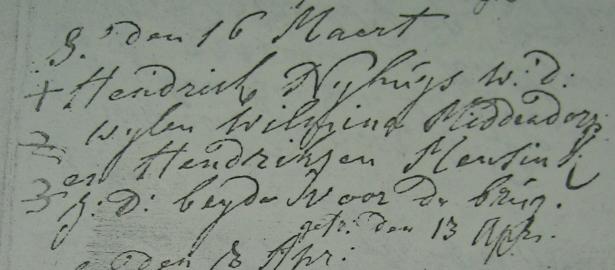 8. den 16 Maert
+ Hendrik Nyhuys w: d:
2 wylen Wilmina Middendorp
en Hendriksen Mensink
3 J: D: beyde voor de brug.
getr: den 13 Apr.
den 8 Apr: